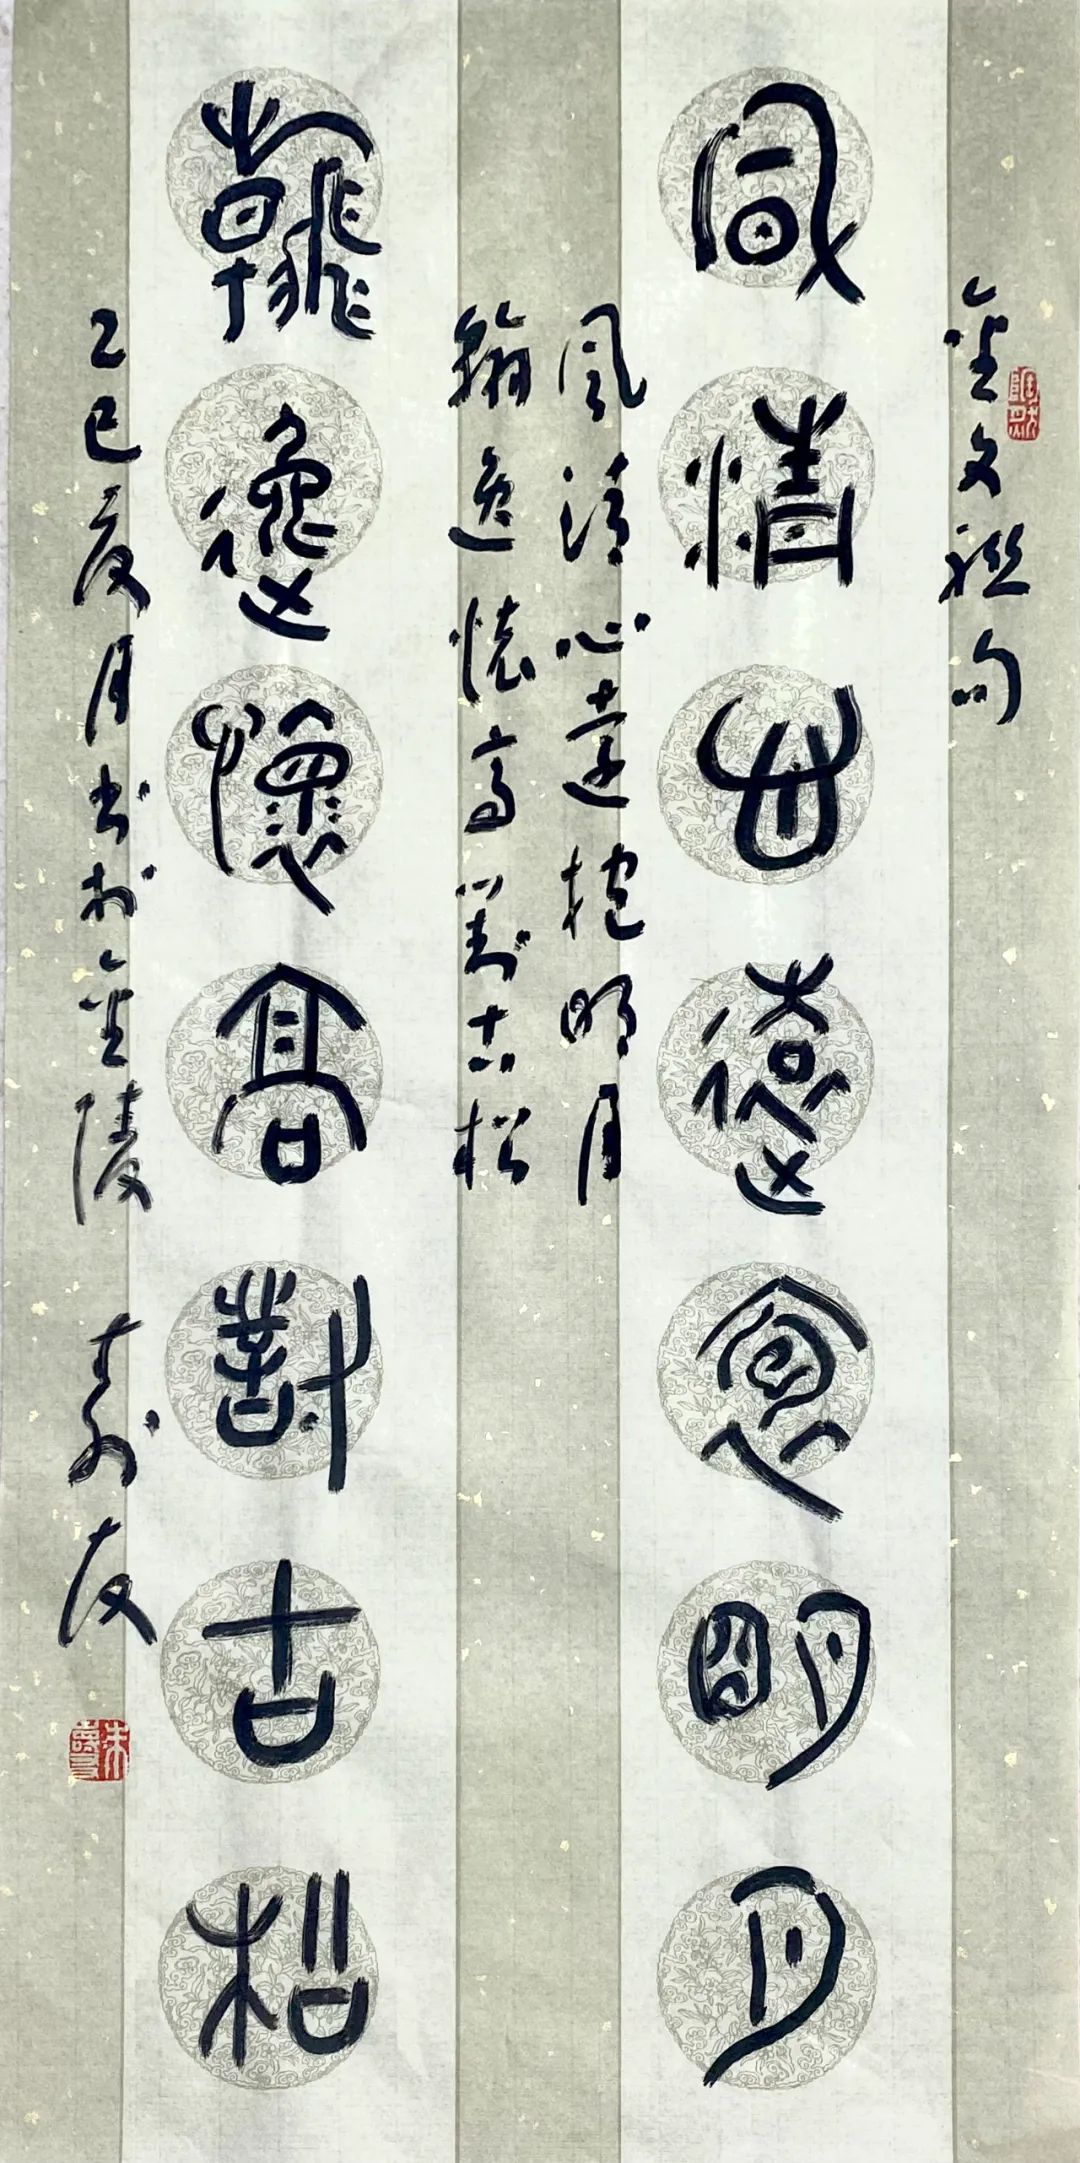 金文聯句
風清心遠抱明月
風清心遠抱明月
翰逸懷高對古松
翰逸懷高對古松
乙巳夏月书於金陵 寿友
朱壽友